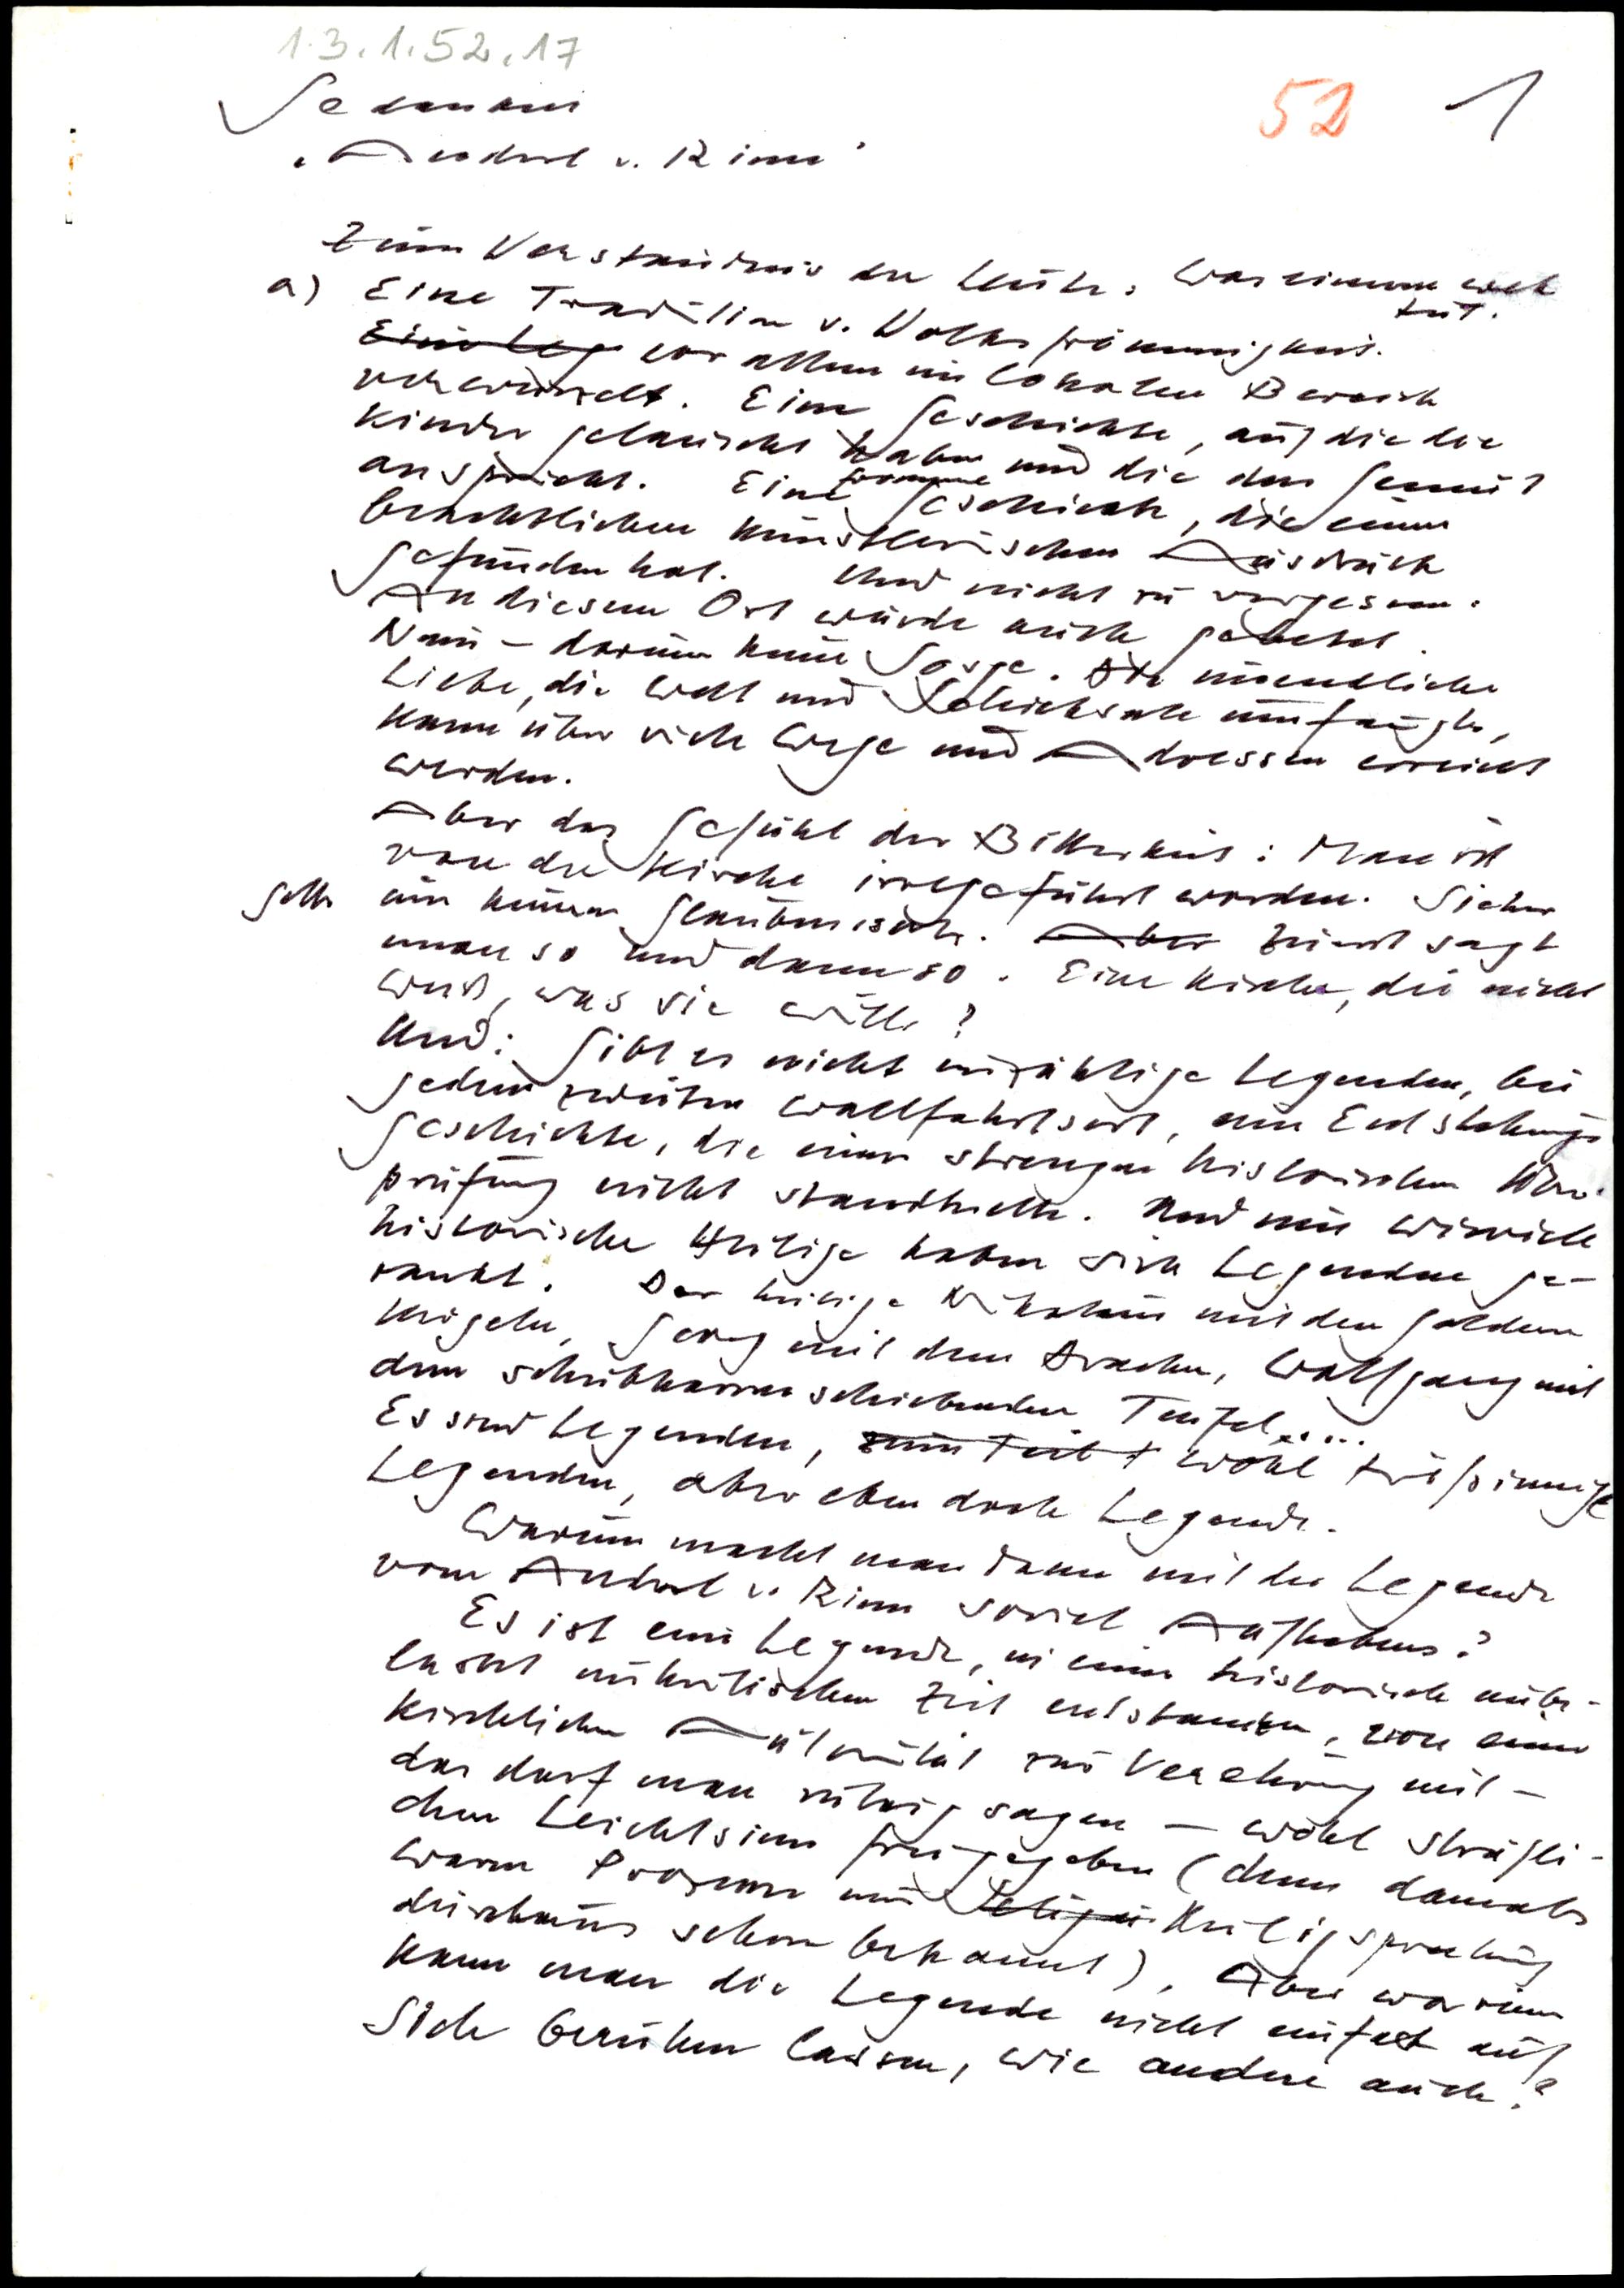 1.3.1.52.17
52 1
Gedanken
"Anderl v. Rinn"
Zum Verständnis der Leute: Was einem weh
tut.
a) Eine Tradition v. Volksfrömmigkeit.
Eine Leg vor allem im lokalen Bereich
verwurzelt. Eine Geschichte, auf die die
Kinder gelauscht haben und die das Gemüt
anspricht. Eine fromme Geschichte, die einen
beachtlichen künstlerischen Ausdruck
gefunden hat. Und nicht zu vergessen:
An diesem Ort wurde auch gebetet.
Nein – darum keine Sorge. Die unendliche
Liebe, die Welt und Schicksale umfängt,
kann über viele Wege und Adressen erreicht
werden.
Aber das Gefühl der Bitterkeit: Man ist
von der Kirche irregeführt worden. Sicher
in keiner Glaubenssache. Aber Zuerst sagt
man so und dann so. Eine Kirche, die nicht
weiß, was sie will?
Und: Gibt es nicht unzählige Legenden, bei
jedem zweiten Wallfahrtsort, eine Entstehungs
geschichte, die einer strengen historischen Über-
prüfung nicht standhielte. Und um wieviele
historische Heilige haben sich Legenden ge-
rankt. Der heilige Nikolaus mit den goldenen
Kugeln, Georg mit dem Drachen, Wolfgang mit
dem schubkarrenschiebenden Teufel....
Es sind Legenden, zum Teil wohl tiefsinnige
Legenden, aber eben doch Legende.
Warum macht man dann mit der Legende
vom Anderl v. Rinn soviel Aufhebens?
Es ist eine Legende, in einer historisch äußerst
unkritischen Zeit entstanden, von einer
kirchlichen Autorität zur Verehrung mit –
das darf man ruhig sagen – wohl sträfli-
chem Leichtsinn freigegeben (denn damals
waren Prozesse um Seligsp Heiligsprechung
durchaus schon bekannt). Aber warum
kann man die Legende nicht einfach auf
sich beruhen lassen, wie andere auch?